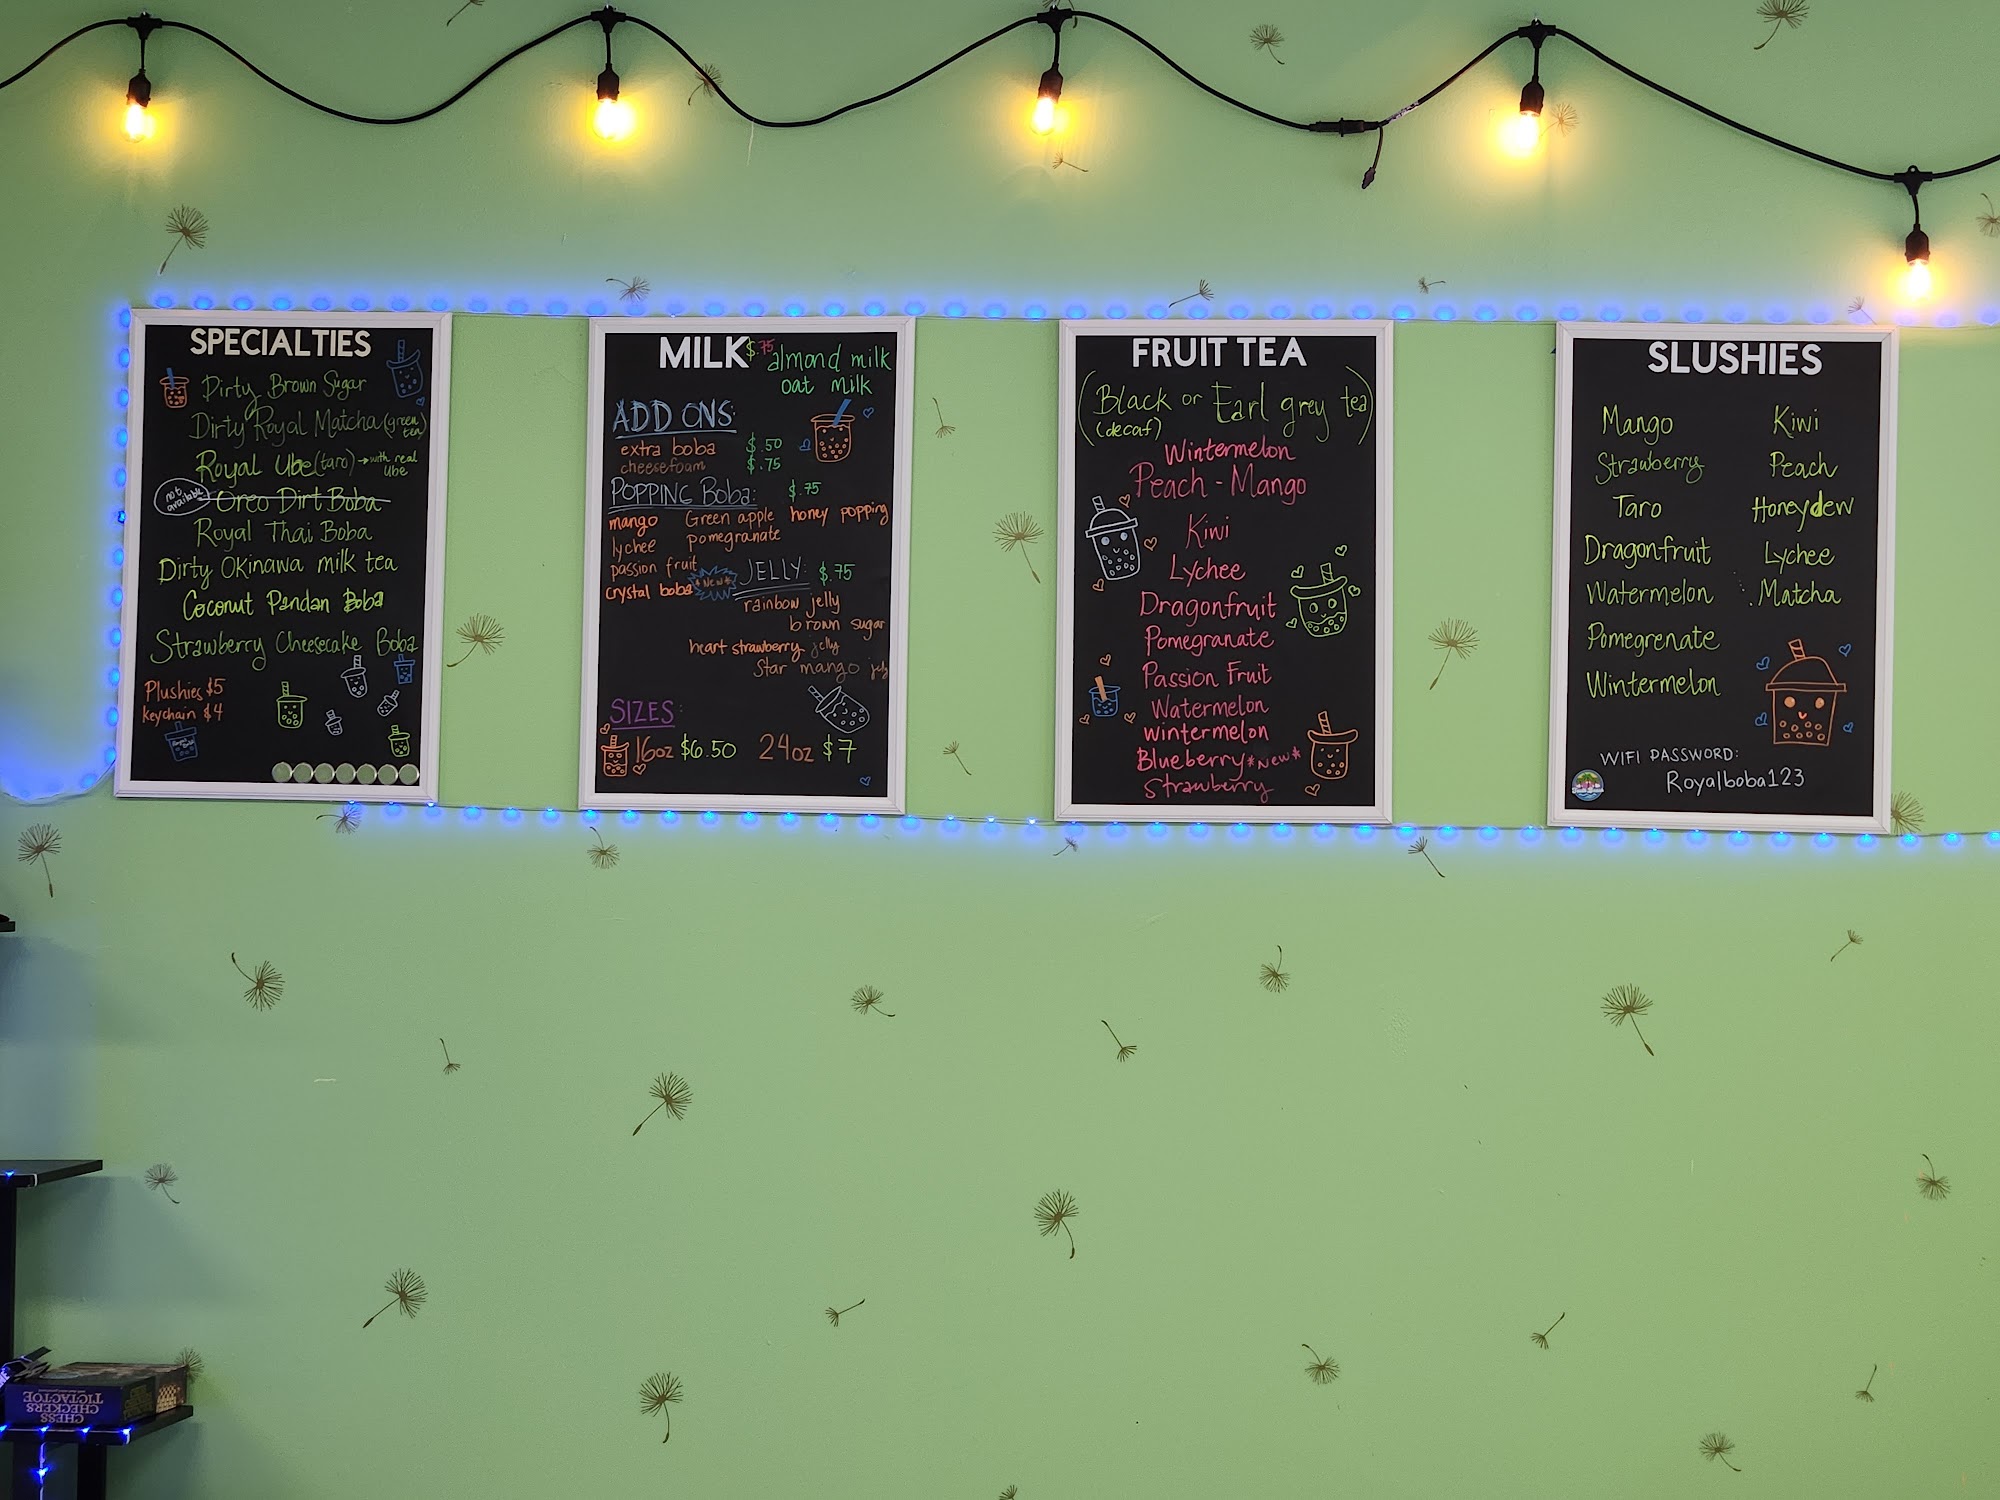 SPECIALTIES
Dirty Brown Sugar
Dirty Royal Matcha (green tea)
Royal Ube (taro) → with real ube
not available
Oreo Dirt Boba
Royal Thai Boba
Dirty Okinawa milk tea
Coconut Pandan Boba
Strawberry Cheesecake Boba
Plushies $5
keychain $4
MILK $.75 almond milk
oat milk
ADD ONS:
extra boba $.50
cheesefoam $.75
POPPING Boba: $.75
mango Green apple honey popping
lychee pomegranate
passion fruit
crystal boba *New*
JELLY: $.75
rainbow jelly
brown sugar
heart strawberry jelly
Star mango jely
SIZES:
16oz $6.50 24oz $7
FRUIT TEA
(Black or Earl grey tea)
(decaf)
Wintermelon
Peach - Mango
Kiwi
Lychee
Dragonfruit
Pomegranate
Passion Fruit
Watermelon
wintermelon
Blueberry *New*
Strawberry
SLUSHIES
Mango Kiwi
Strawberry Peach
Taro Honeydew
Dragonfruit Lychee
Watermelon Matcha
Pomegrenate
Wintermelon
WIFI PASSWORD:
Royalboba123
CHESS
CHECKERS
TICTACTOE